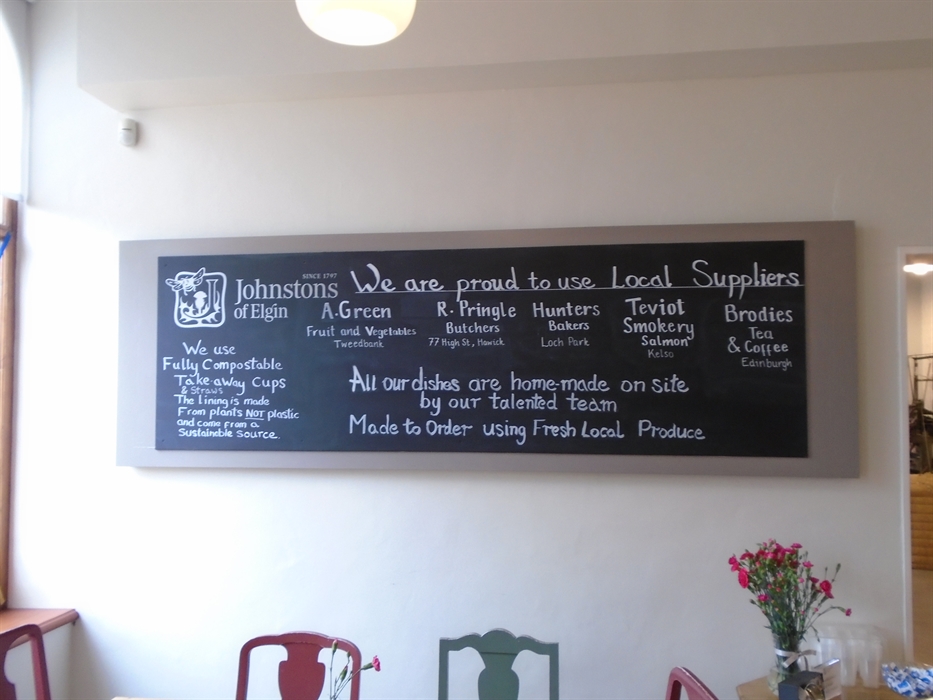 SINCE 1797
Johnstons
of Elgin
We are proud to use Local Suppliers
A. Green
Fruit and Vegetables
Tweedbank
R. Pringle
Butchers
77 High St, Hawick
Hunters
Bakers
Loch Park
Teviot
Smokery
Salmon
Kelso
Brodies
Tea
& Coffee
Edinburgh
We use
Fully Compostable
Take-away Cups
& Straws
The lining is made
From plants NOT plastic
and come from a
Sustainable Source.
All our dishes are home-made on site
by our talented team
Made to Order using Fresh Local Produce